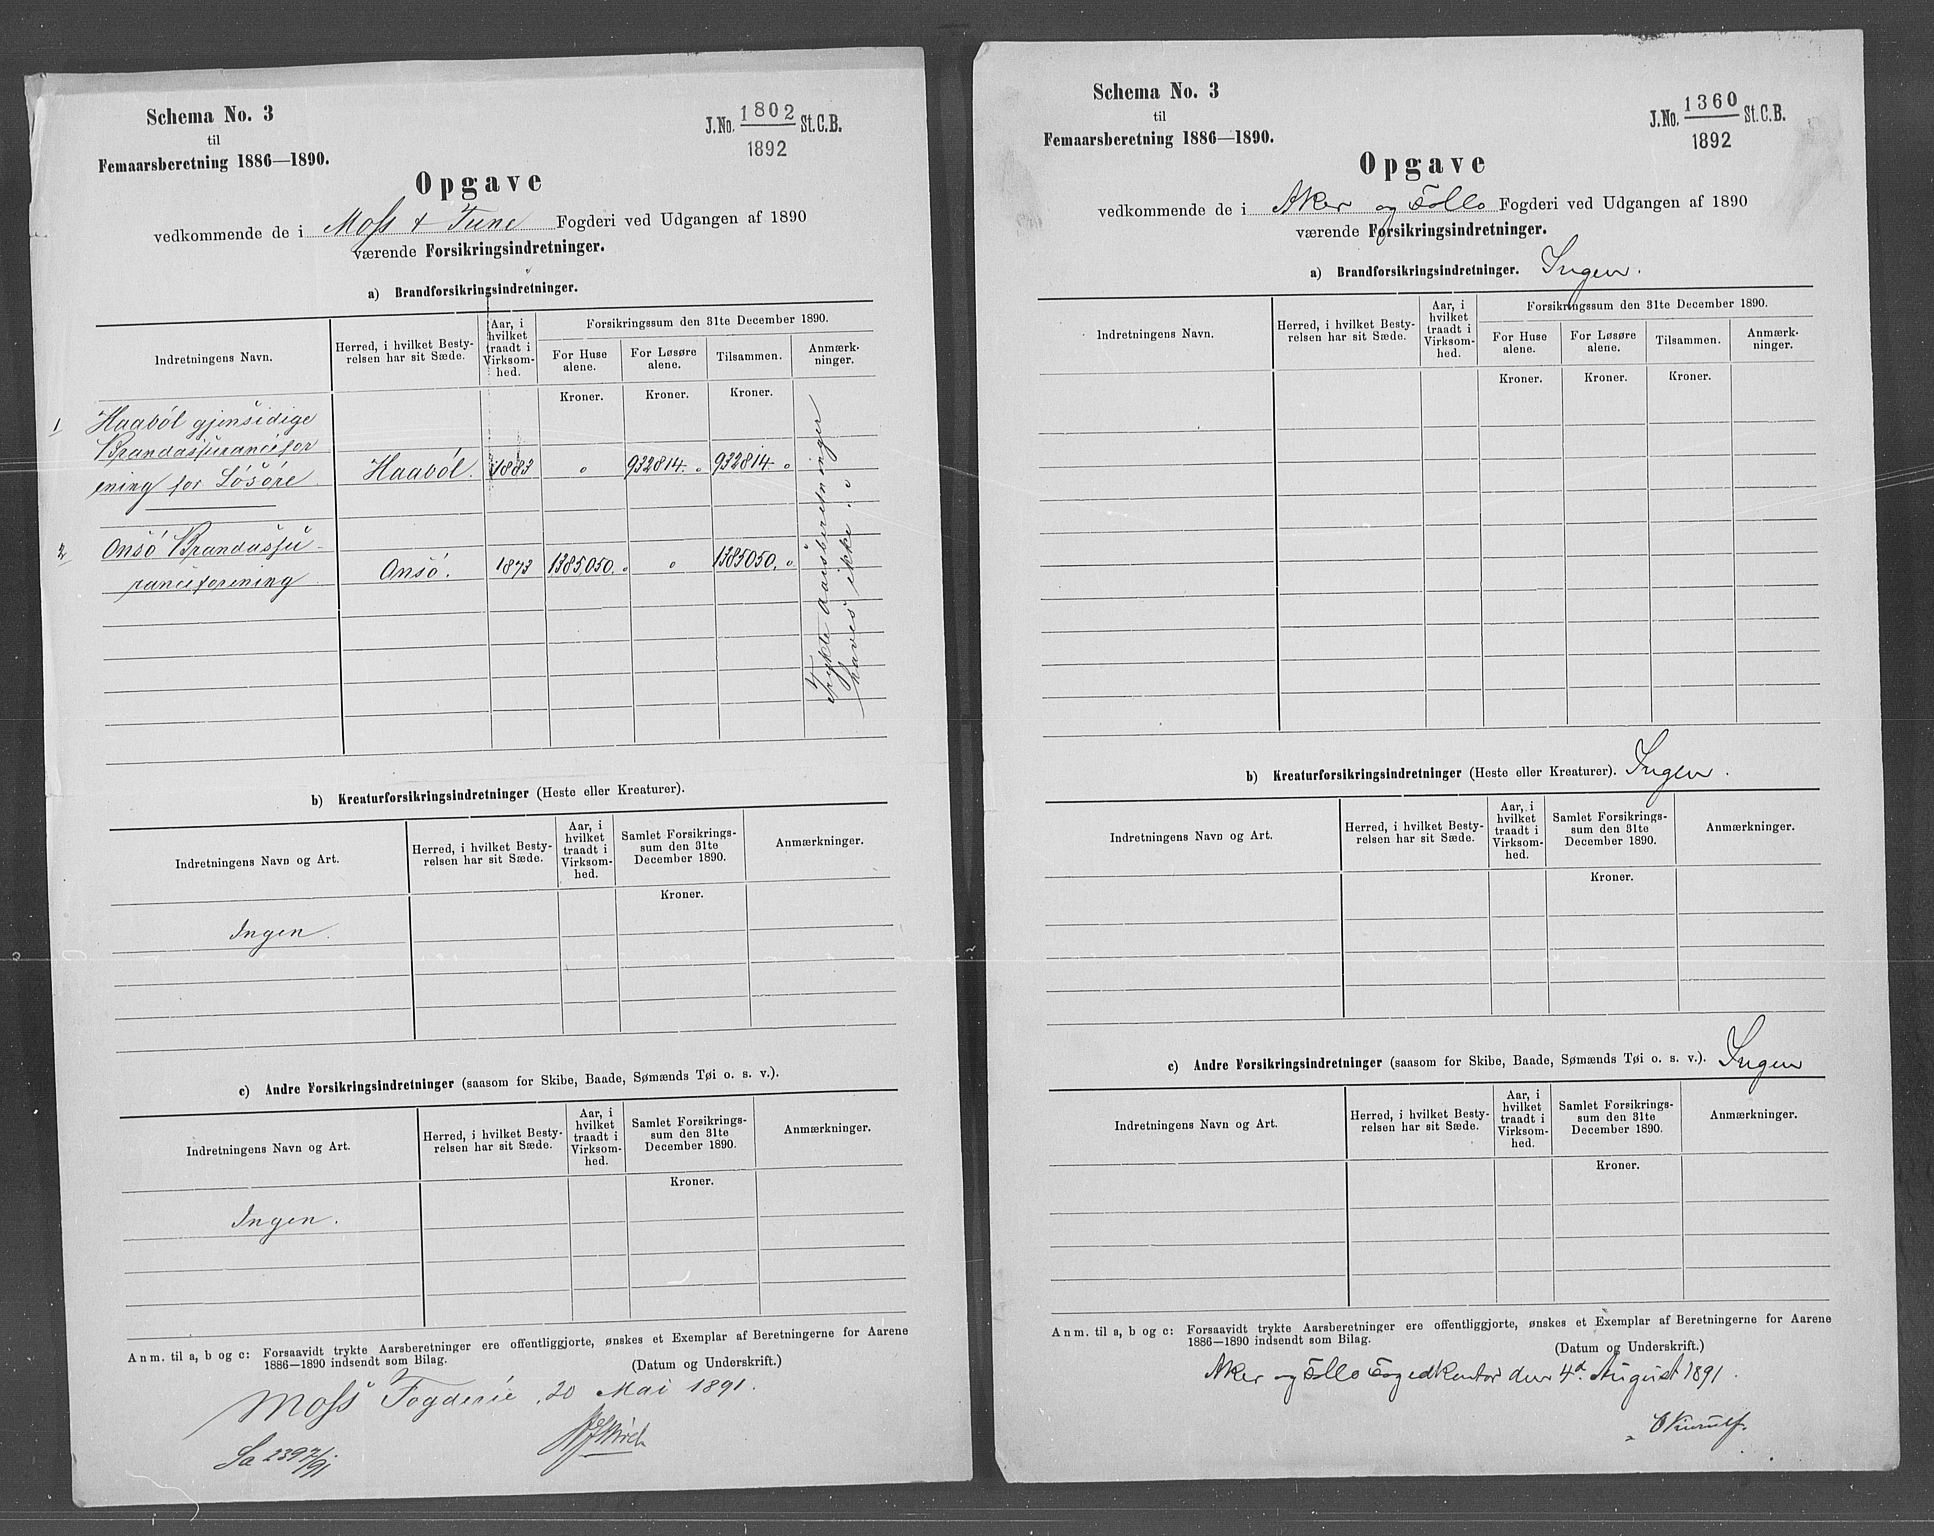 Schema No. 3
til
Femaarsberetning 1886—1890.
J.No. 1802 St.C.B.
1892
Opgave
vedkommende de i Moss & Tune Fogderi ved Udgangen af 1890
værende Forsikringsindretninger.
a) Brandforsikringsindretninger.
Indretningens Navn.
Herred, i hvilket Besty-
relsen har sit Sæde.
Aar, i
hvilket
traadt i
Virksom-
hed.
Forsikringssum den 31te December 1890.
For Huse
alene.
For Løsøre
alene.
Tilsammen.
Anmærk-
ninger.
Kroner. Kroner. Kroner.
1 Haaböl gjensidige
Brandassurancefor
ening for Lösöre Haaböl. 1883 " 932814. " 932814 "
2 Onsö Brandassu-
ranceforening Onsö. 1873 1385050. " " 1385050. "
Trykte Aarsberetninger
haves ikke.
b) Kreaturforsikringsindretninger (Heste eller Kreaturer).
Indretningens Navn og Art.
Herred, i hvilket Besty-
relsen har sit Sæde.
Aar, i
hvilket
traadt i
Virksom-
hed.
Samlet Forsikrings-
sum den 31te
December 1890.
Anmærkninger.
Kroner.
Ingen.
c) Andre Forsikringsindretninger (saasom for Skibe, Baade, Sømænds Tøi o. s. v.).
Indretningens Navn og Art.
Herred, i hvilket Besty-
relsen har sit Sæde.
Aar, i
hvilket
traadt i
Virksom-
hed.
Samlet Forsikrings-
sum den 31te
December 1890.
Anmærkninger.
Kroner.
Ingen.
Anm. til a, b og c: Forsaavidt trykte Aarsberetninger ere offentliggjorte, ønskes et Exemplar af Beretningerne for Aarene
1886—1890 indsendt som Bilag.
(Datum og Underskrift.)
Moss Fogderie 20 Mai 1891.
Sa 2397/91
Schema No. 3
til
Femaarsberetning 1886—1890.
J.No. 1360 St.C.B.
1892
Opgave
vedkommende de i Aker og Follo Fogderi ved Udgangen af 1890
værende Forsikringsindretninger.
a) Brandforsikringsindretninger. Ingen.
Indretningens Navn.
Herred, i hvilket Besty-
relsen har sit Sæde.
Aar, i
hvilket
traadt i
Virksom-
hed.
Forsikringssum den 31te December 1890.
For Huse
alene.
For Løsøre
alene.
Tilsammen.
Anmærk-
ninger.
Kroner. Kroner. Kroner.
b) Kreaturforsikringsindretninger (Heste eller Kreaturer). Ingen.
Indretningens Navn og Art.
Herred, i hvilket Besty-
relsen har sit Sæde.
Aar, i
hvilket
traadt i
Virksom-
hed.
Samlet Forsikrings-
sum den 31te
December 1890.
Anmærkninger.
Kroner.
c) Andre Forsikringsindretninger (saasom for Skibe, Baade, Sømænds Tøi o. s. v.). Ingen
Indretningens Navn og Art.
Herred, i hvilket Besty-
relsen har sit Sæde.
Aar, i
hvilket
traadt i
Virksom-
hed.
Samlet Forsikrings-
sum den 31te
December 1890.
Anmærkninger.
Kroner.
Anm. til a, b og c: Forsaavidt trykte Aarsberetninger ere offentliggjorte, ønskes et Exemplar af Beretningerne for Aarene
1886—1890 indsendt som Bilag.
(Datum og Underskrift.)
Aker og Follo Fogedkontor den 4d August 1891.